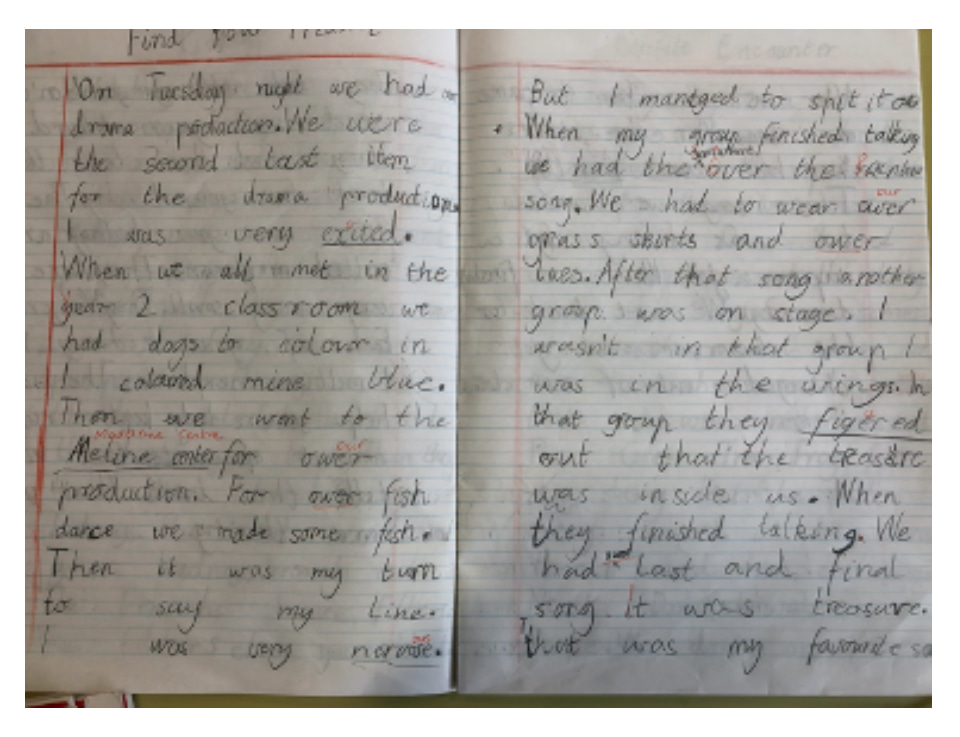 Find your Treasure
On Tuesday night we had a
drama production. We were
the second last item
for the drama production.
I was very exited.
When we all met in the
year 2 classroom we
had dogs to colour in
I coloured mine blue.
Then we went to the
Madeline Centre our
Meline center for ower
production. For ower fish
dance we made some fish.
Then it was my turn
to say my line.
I was very
But I manged to spit it
When my group finished talking
we had the over the
our
song. We had to wear ower
grass skirts and ower
lues. After that song another
group was on stage. I
wasn't in that group I
was in the wings. In
that group they figered
out that the
was inside us. When
they finished talking. We
had last and final
song. It was treasure.
That was my favourite so